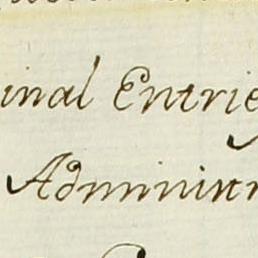 inal Entrie
Administr